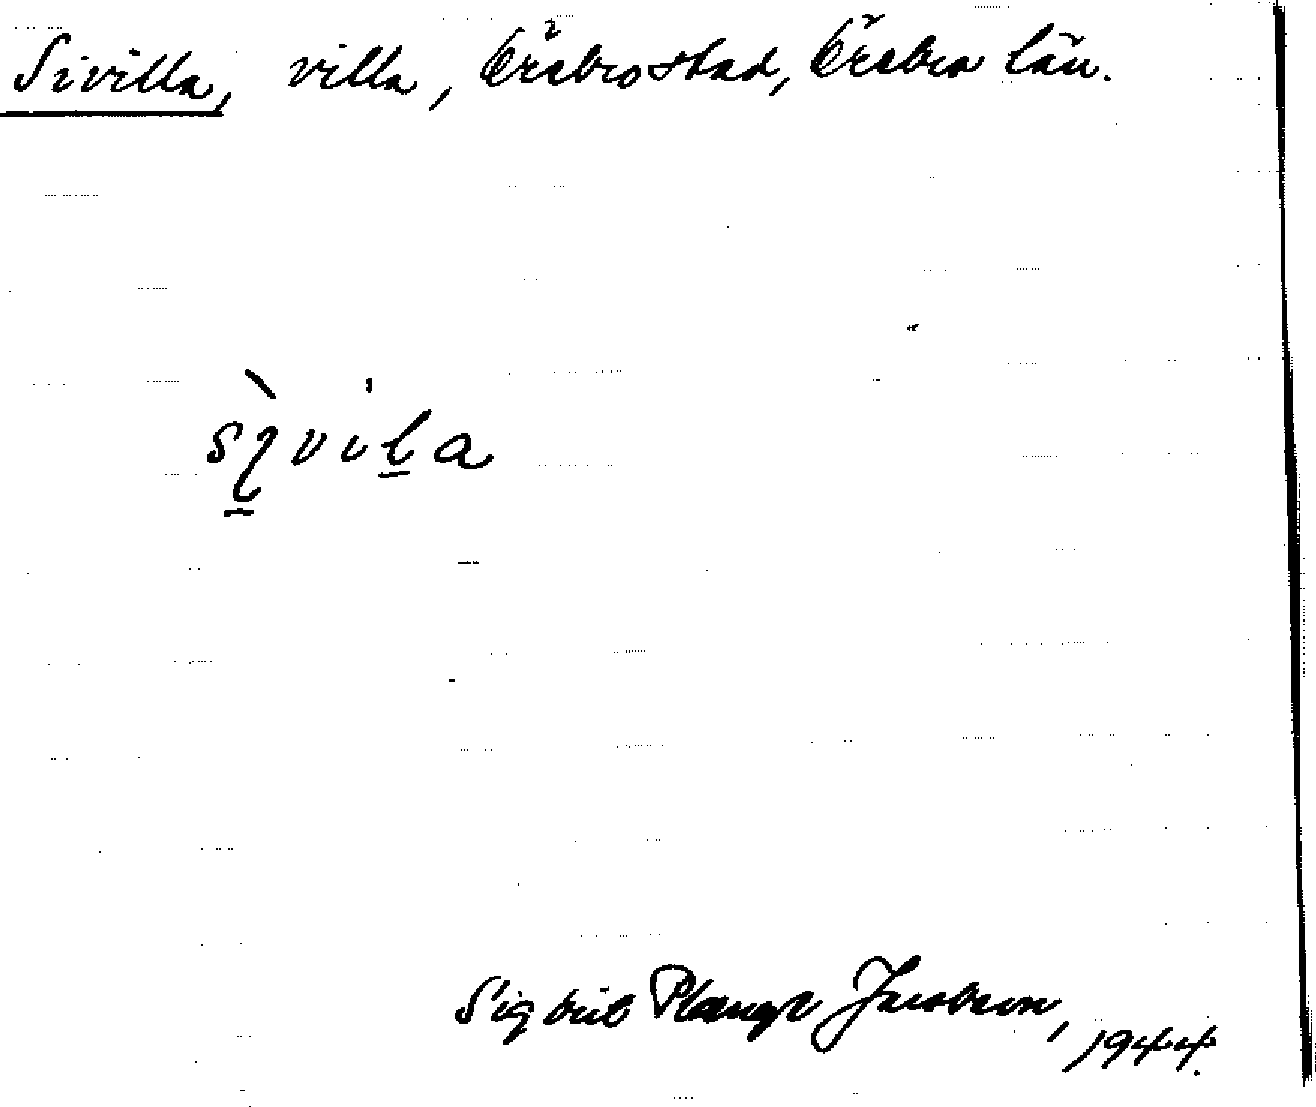 Sivilla, villa, Örebro stad, Örebro län.
sı̱̀viḻa
Sigbrit Plænge Jacobson,
1944.